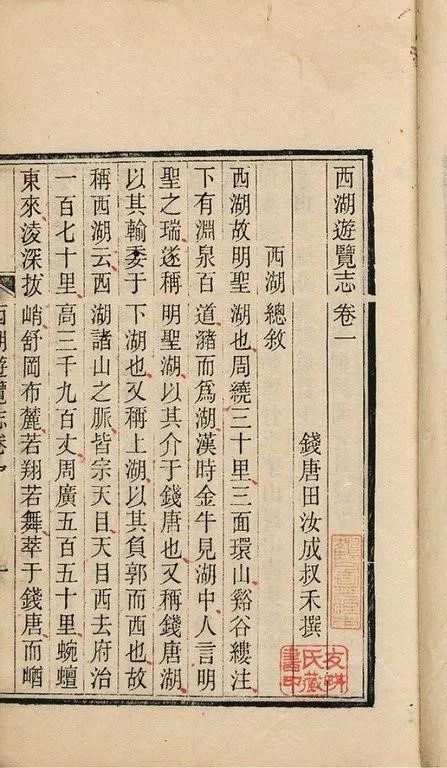 西湖遊覽志卷一
錢唐田汝成叔禾撰
西湖總敘
西湖故明聖湖也周繞三十里三面環山谿谷縷注
下有淵泉百道瀦而爲湖漢時金牛見湖中人言明
聖之瑞遂稱明聖湖以其介于錢唐也又稱錢唐湖
以其輸委于下湖也又稱上湖以其負郭而西也故
稱西湖云西湖諸山之脈皆宗天目天目西去府治
一百七十里高三千九百丈周廣五百五十里蜿蟺
東來淩深拔峭舒岡布麓若翔若舞萃于錢唐而崷
西湖遊覽志卷